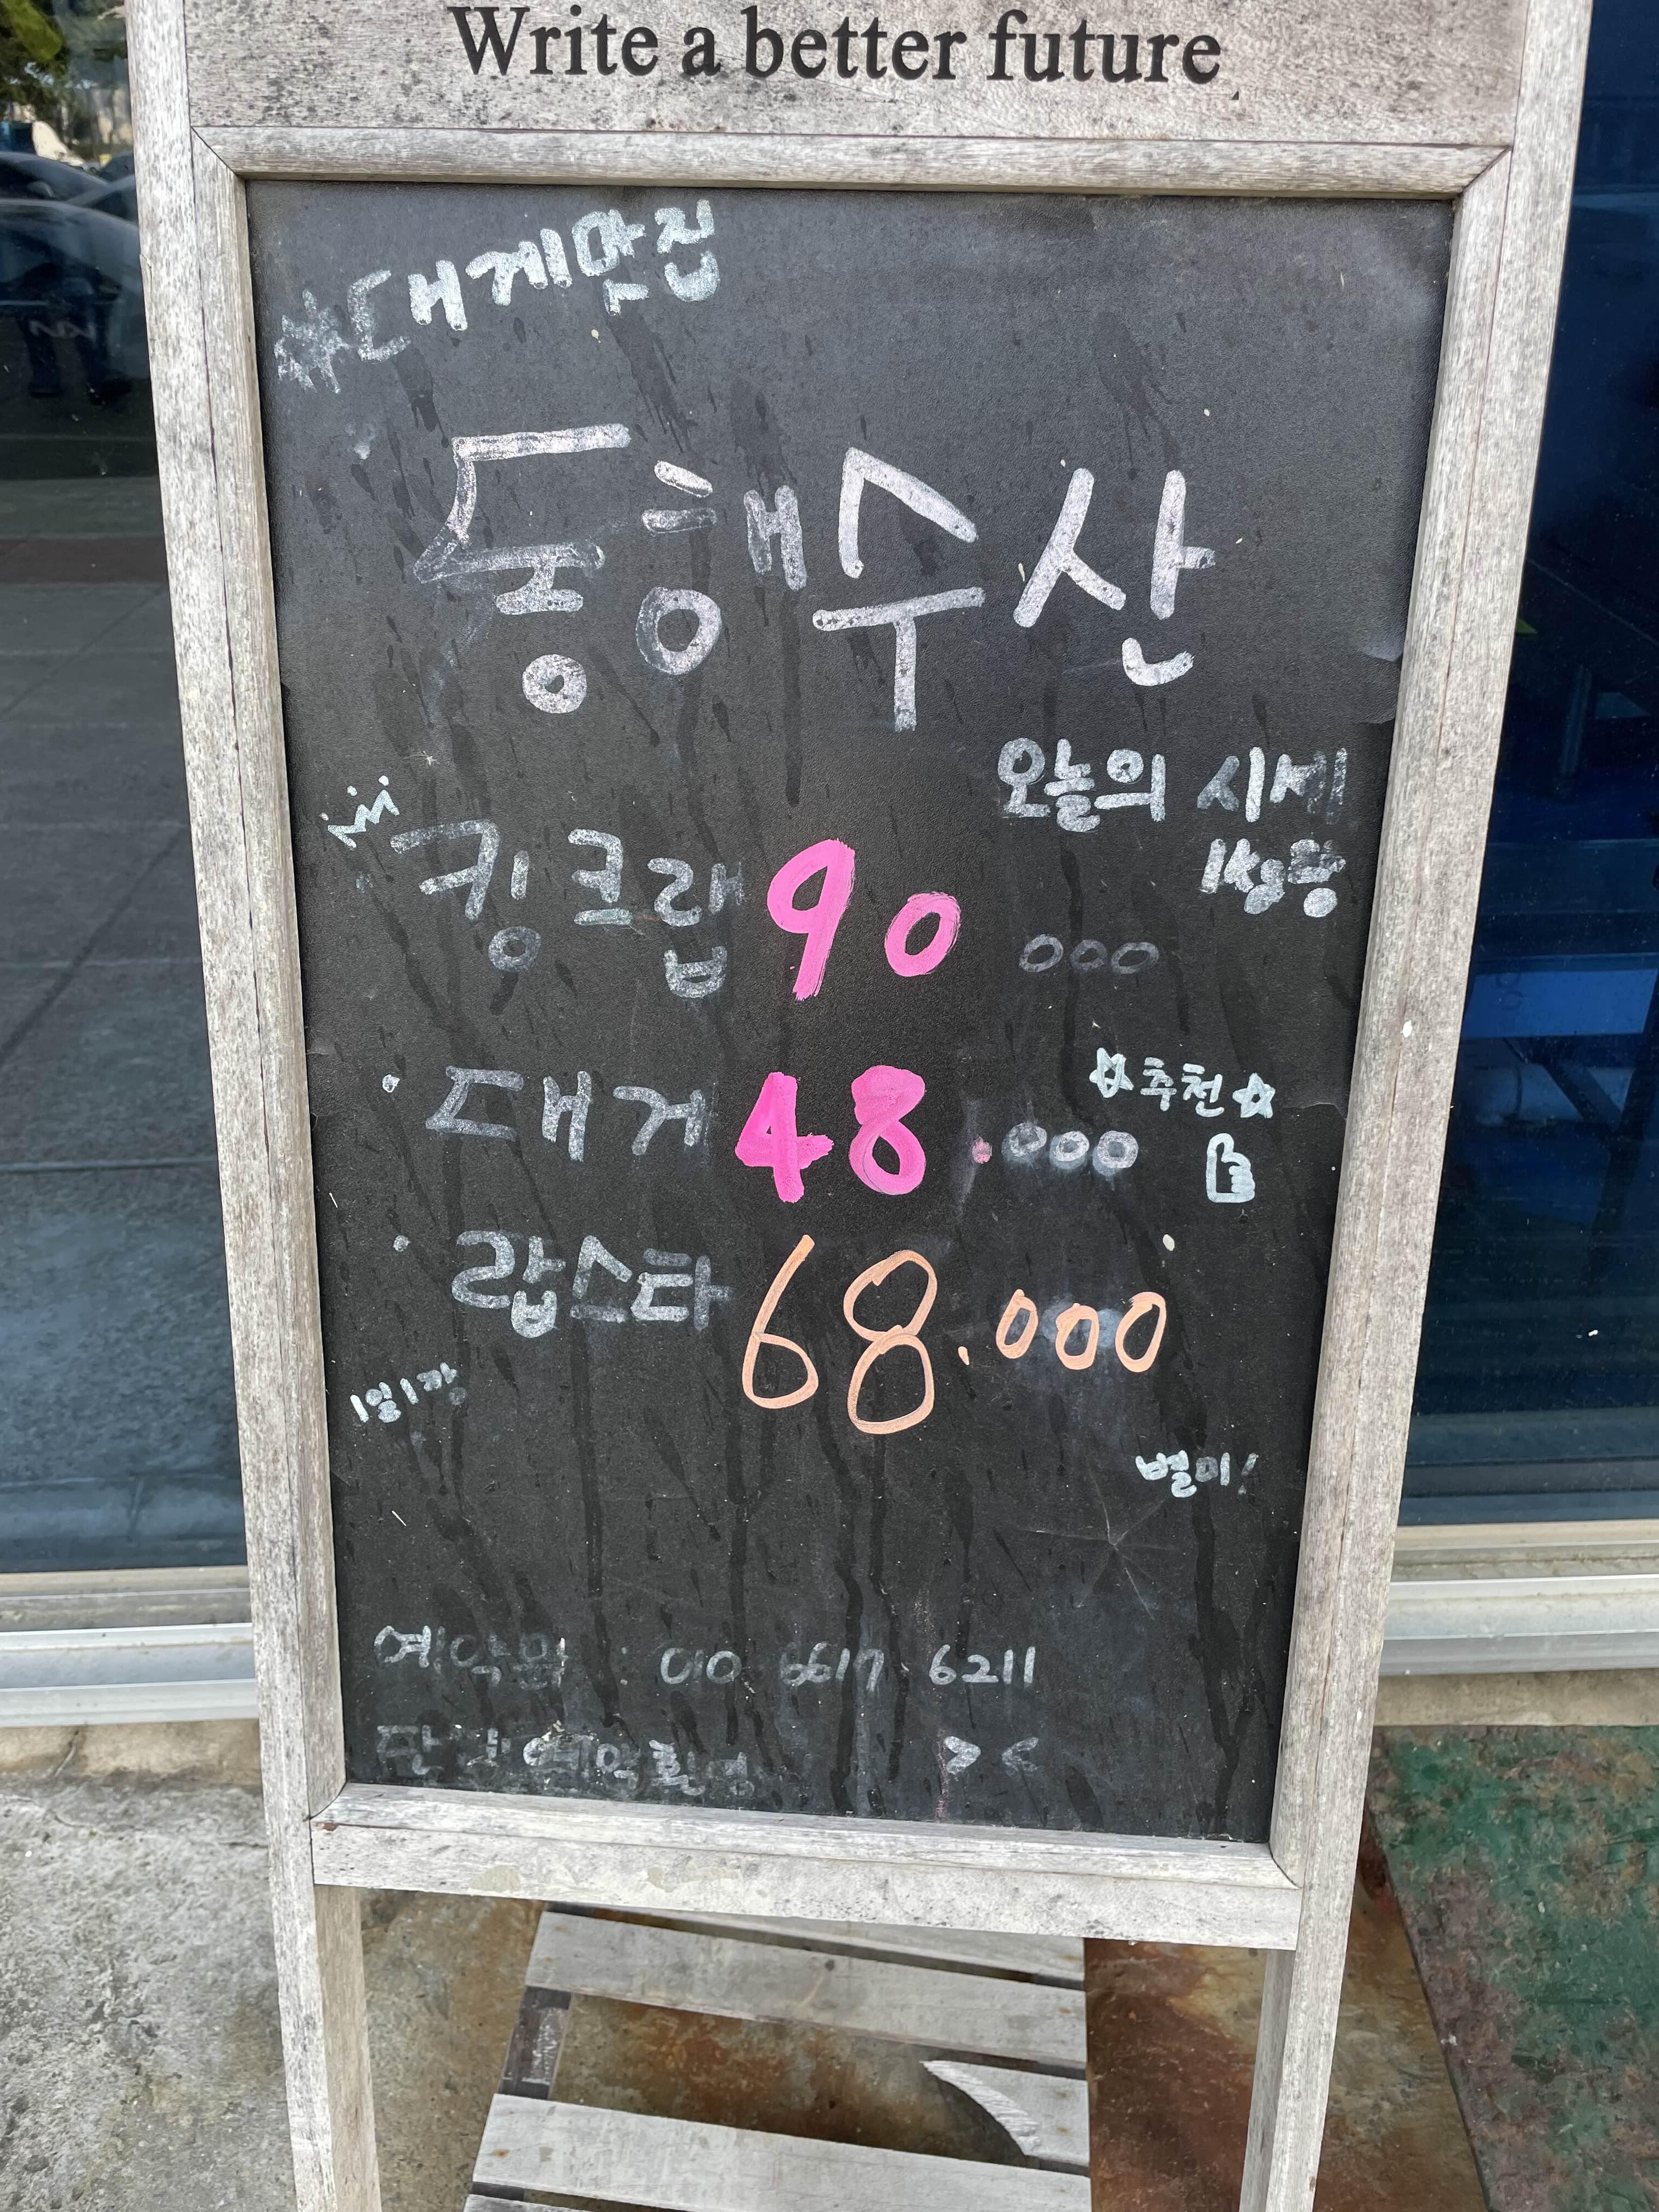 Write a better future
#대게맛집
동해수산
오늘의 시세
1kg당
킹크랩 90 000
☆추천☆
대게 48.000
랍스타 68.000
1일1깡
별미!
예약문의 010 6617 6211
예약환영 > <